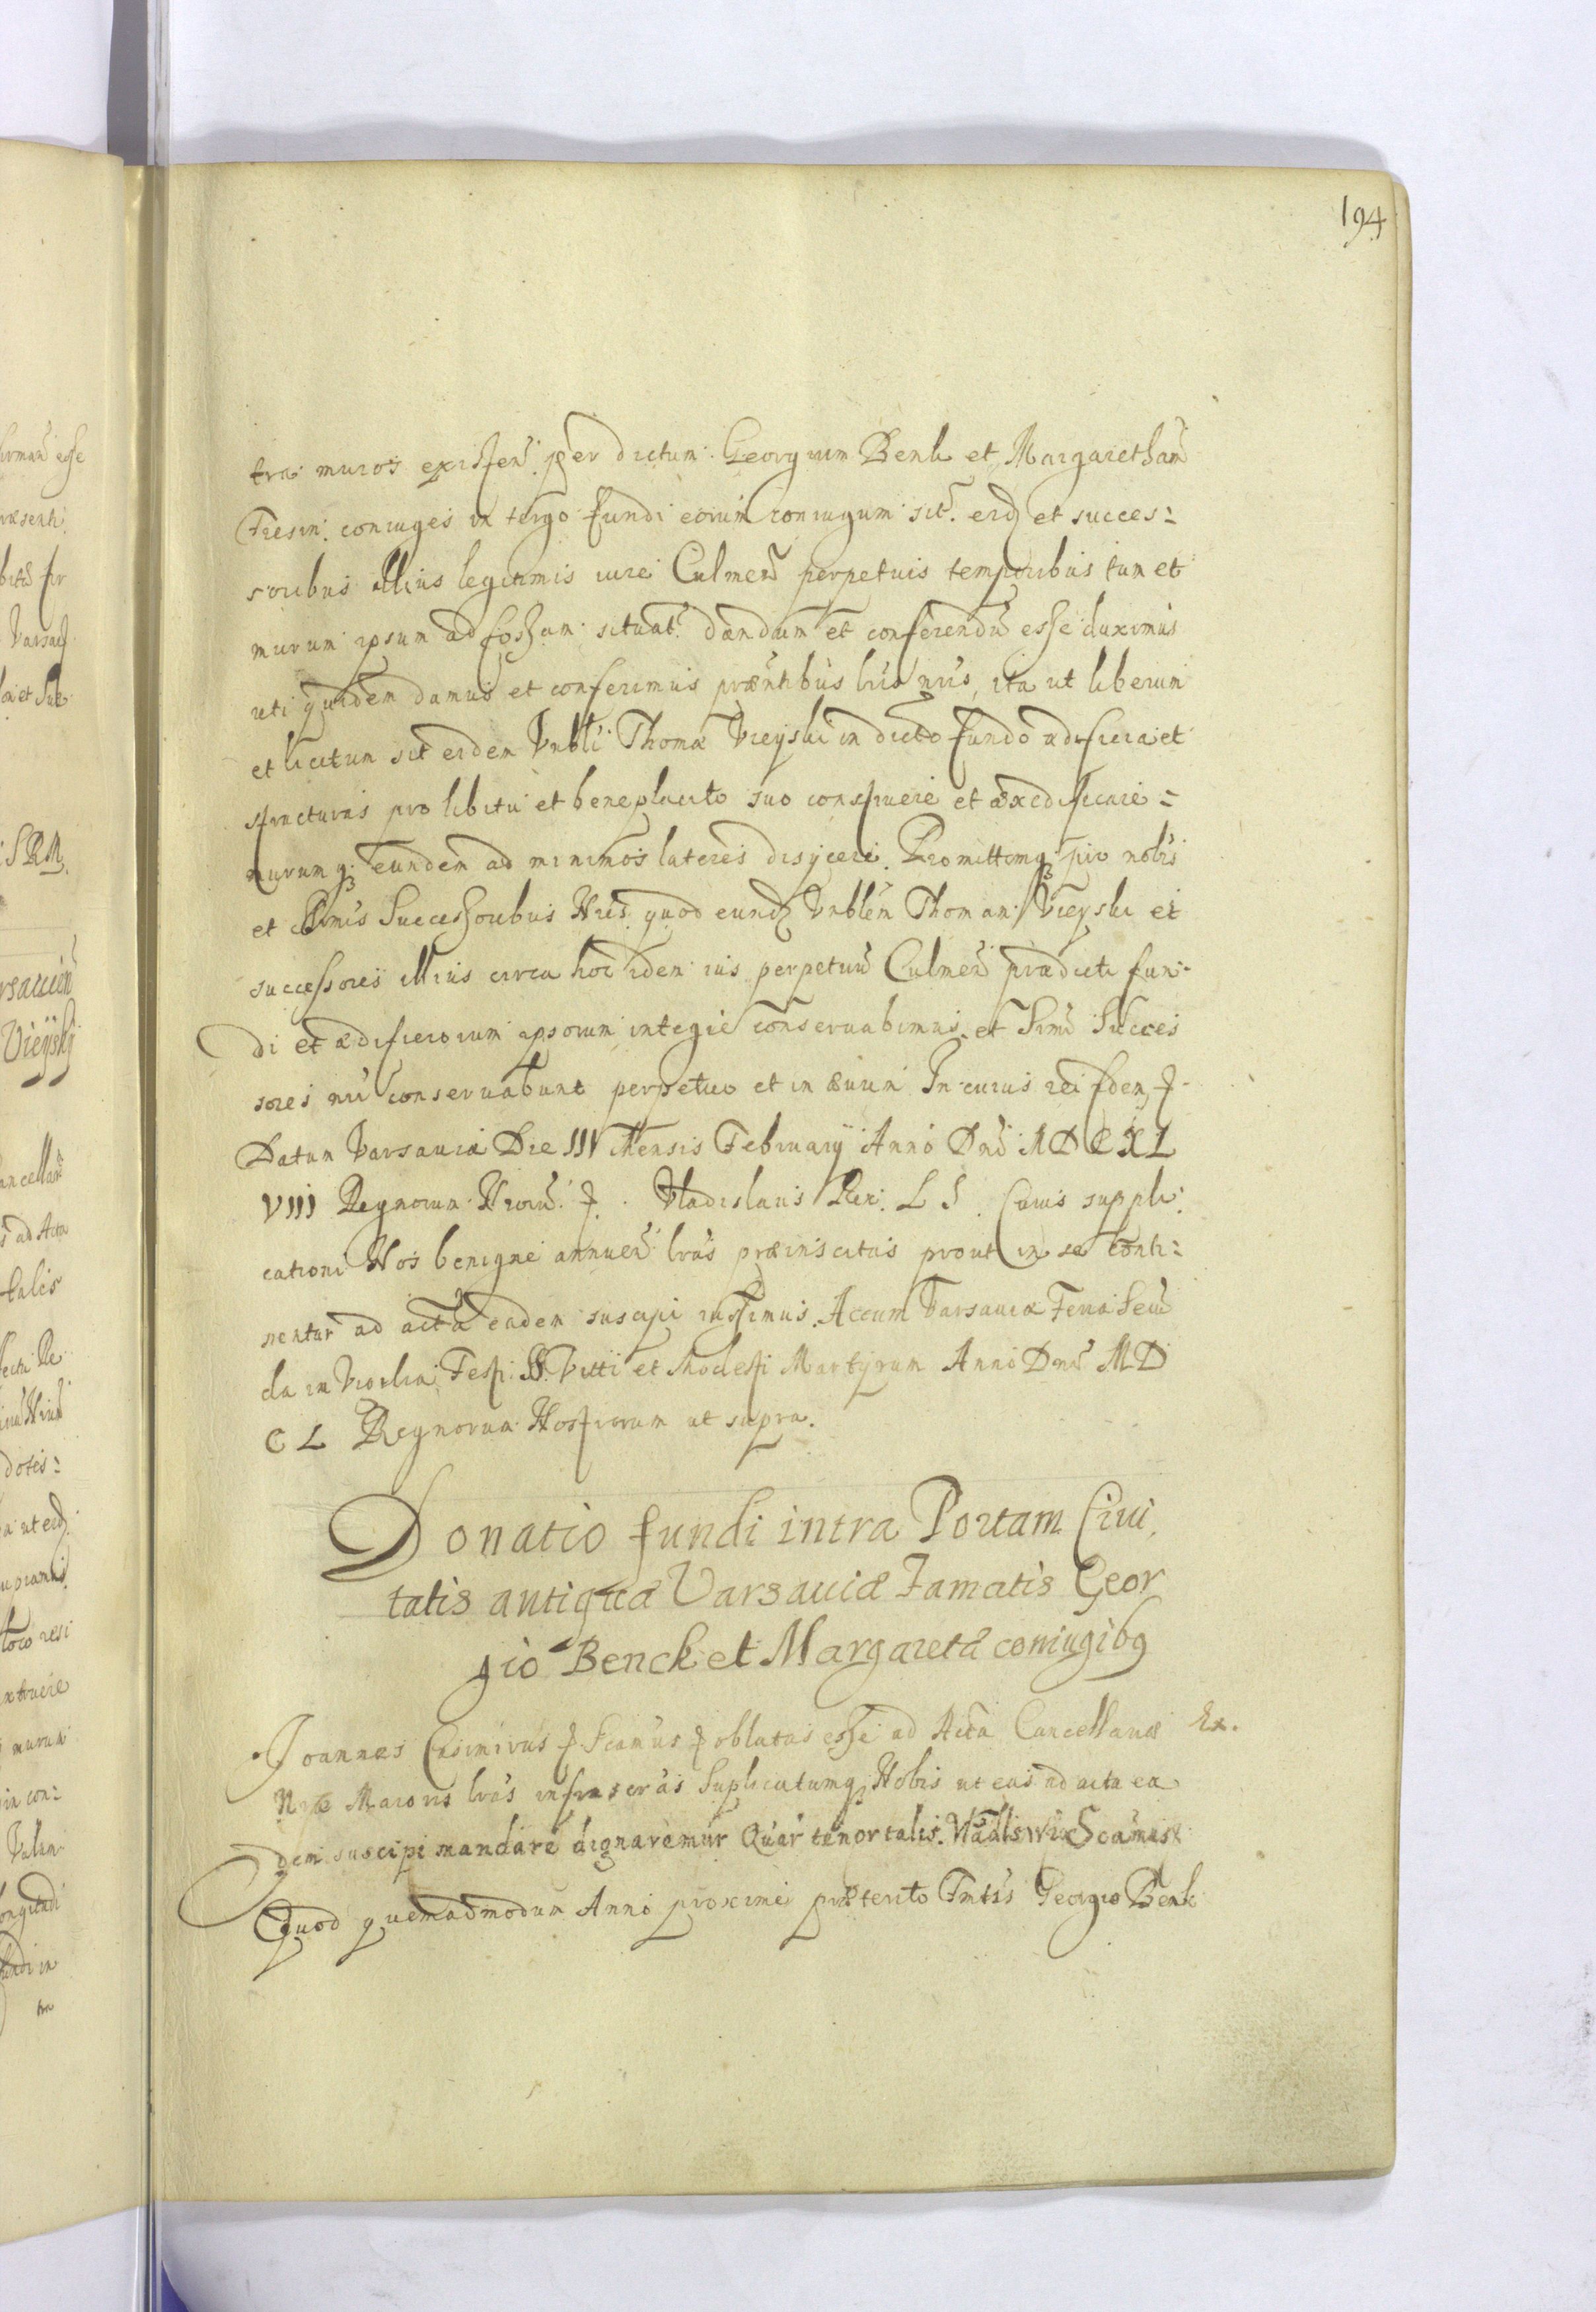 194
tra muros existen̄. per dictum Georgium Benk et Margaretham̄
Fresin: coniuges in tergo fundi eorum coniugum sit. eidȝ et succes=
soribus illius legitimis iure Culmen̄ perpetuis temporibus tum et
murum ipsum ad fossam situat. dandum et conferendū esse duximus
uti quidem damus et conferimus præntibus lris nris, ita ut liberum
et licitum sit eidem Vrbli Thomæ Vieyski in dicto fundo ædificia et
structuras pro libitu et beneplacito suo construere et exædificare =
murumqȝ eundem ad minimos lateres disijcere. Promittimqȝ pro nobis
et Srmis Successoribus Nris. quod eundȝ Vrblem Thomam Vieyski et
successores illius circa hoc idem ius perpetuū Culmen̄ prædicti fun-
di et ædificiorum ipsorum integre conservabimus, et Srmi Succes
sores nri conservabunt perpetuo et in ævum In cuius rei fidem ꝭ.
Datum Varsaviæ Die IIV Mensis February Anno Dni M D C X L
VIII Regnorum Nrorū. ꝭ. Vladislaus Rex. L S. Cuius suppli:
cationi Nos benigne annuen̄. lras præinscitas prout in se conti=
nentur ad acta eadem suscipi iussimus. Actum Varsaviæ Feria Secū
da in Vigilia Festi SS. Viti et Modesti Martyrum Anno Dni M D
C L Regnorum Nostrorum ut supra.
Donatio fundi intra Portam Civi
tatis antiquæ Varsaviæ Famatis Geor
gio Benck et Margaretæ coniugibꝰ
Joannes Casimirus ꝭ Scamus ꝭ oblatas esse ad Acta Cancellariæ Ex.
Nræ Maioris lras infrascras Suplicatumqȝ Nobis ut eas ad acta ea
dem suscipi mandare dignaremur Quar̄ tenor talis. Vladls wta Scamus
Quod quemadmodum Anno proxime præterito Fmtis Georgio Benk